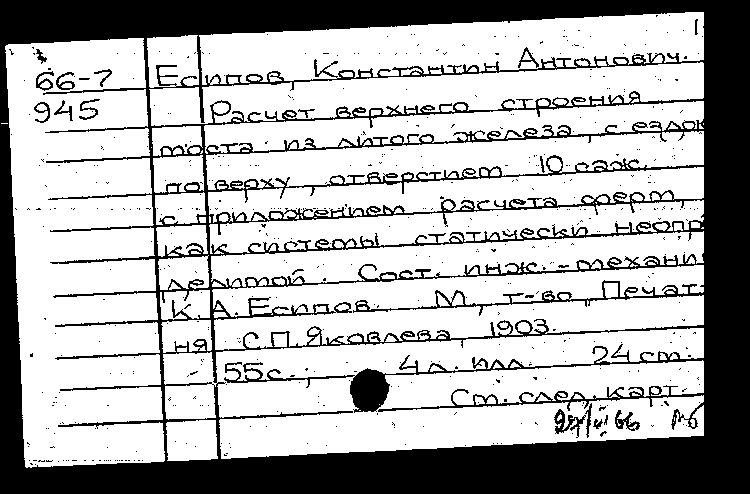 66-7 Есипов, Константин Антонович.
945 Расчет верхнего строения
моста из литого железа, с ездой
по верху, отверстием 10 саж.
с приложением расчета ферм,
как системы статически неопре
делимой. Сост. инж.-механи
К. А. Есипов. М., т-во „Печат-
ня С.П.Яковлева, 1903.
55с.; 4 л. илл. 24 см.
См. след. карт.